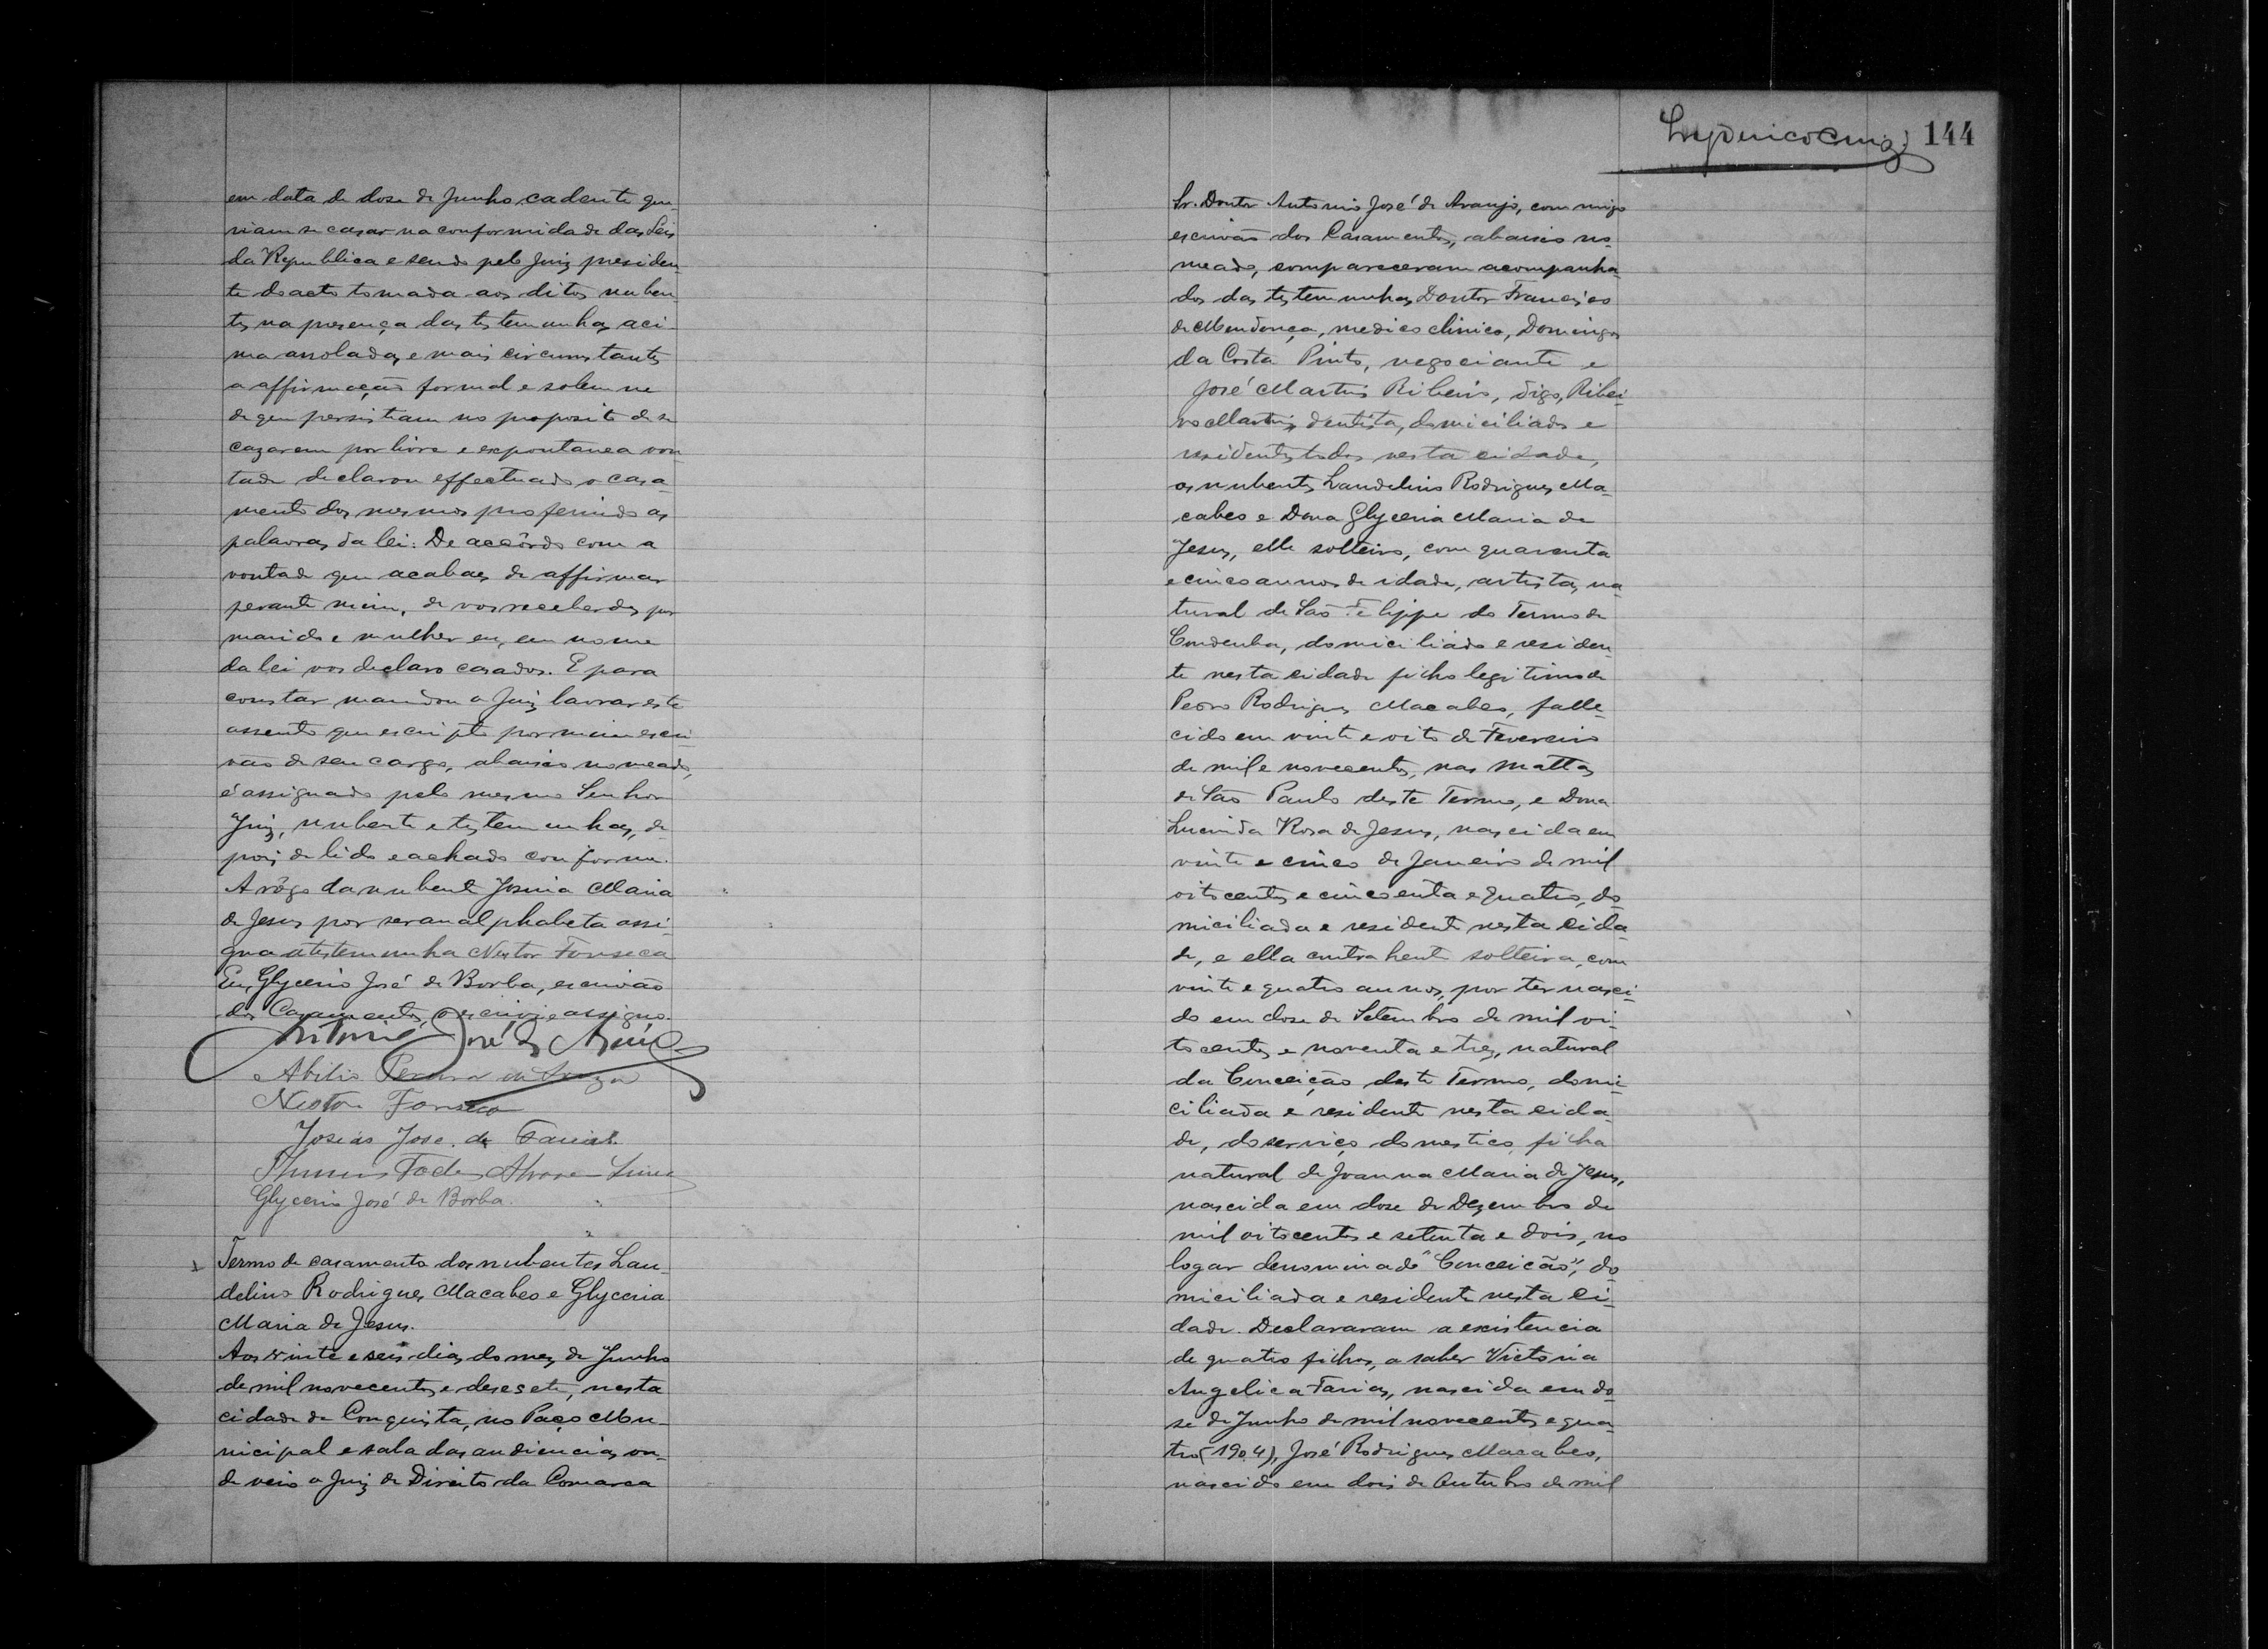 em data de dose de Junho cadente que
riam se casar na conformidade das Leis
da Republica e sendo pelo Juiz presiden
te do acto tomada aos ditos nuben
tes na presença das testemunhas aci-
ma arroladas e mais circumstantes
a affirmação formal e solemne
de que persistiam no proposito de se
cazarem por livre e expontanea von
tade declarou effectuado o casa-
mento dos mesmos proferindo as
palavras da lei: De accôrdo com a
vontade que acabaes de affirmar
perante mim, de vos receberdes por
marido e mulher eu, em nome
da lei vos declaro casados. E para
constar mandou o Juiz lavrar este
assento que escripto por mim escri-
vão de seu cargo, abaixo nomeado,
é assignado pelo mesmo Senhor
Juiz, nubente e testemunhas, de-
pois de lido e achado conforme.
A rôgo da nubente Josina Maria
de Jesus por ser analphabeta assi-
gna a testemunha Nestor Fonseca
Eu, Glycerio José de Borba, escrivão
dos Casamentos, o escrevi e assigno.
Antonio José de Araujo
Abilio Pereira de Souza
Nestor Fonseca
Josias Jose de Farias
Glycerio José de Borba.
Termo de casamento dos nubentes Lau-
delino Rodrigues Macabeo e Glyceria
Maria de Jesus.
Aos vinte e seis dias do mez de Junho
de mil novecentos e desesete, nesta
cidade de Conquista, no Paço Mu-
nicipal e sala das audiencias, on-
de veio o Juiz de Direito da Comarca
144
Sr. Doutor Antonio José de Araujo, commigo
escrivão dos Casamentos, abaixo no-
meado, compareceram acompanha-
dos das testemunhas Doutor Francisco
de Mendonça, medico clinico, Domingos
da Costa Pinto, negociante e
José Martins Ribeiro, digo, Ribei-
ro Martins, dentista, domiciliados e
residentes todos nesta cidade,
os nubentes Laudelino Rodrigues Ma-
cabeo e Dona Glyceria Maria de
Jesus, elle solteiro, com quarenta
e cinco annos de idade, artista, na-
tural de São Felippe do Termo de
Condeuba, domiciliado e residen-
te nesta cidade filho legitimo de
Pedro Rodrigues Macabeo, falle-
cido em vinte e oito de Fevereiro
de mil e novecentos, nas Mattas
de São Paulo deste Termo, e Dona
Lucinda Rosa de Jesus, nascida em
vinte e cinco de Janeiro de mil
oitocentos e cincoenta e quatro, do-
miciliada e residente nesta cida-
de, e ella contrahente solteira, com
vinte e quatro annos, por ter nasci-
do em dose de Setembro de mil oi-
tocentos e noventa e tres, natural
da Conceição deste Termo, domi-
ciliada e residente nesta cida-
de, do serviço domestico, filha
natural de Joanna Maria de Jesus,
nascida em dose de Dezembro de
mil oitocentos e setenta e dois, no
logar denominado "Conceicão", do-
miciliada e residente nesta ci-
dade. Declararam a existencia
de quatro filhos, a saber Victoria
Angelica Farias, nascida em do-
se de Junho de mil novecentos e qua-
tro (1904), José Rodrigues Macabeo,
nascido em dois de Outubro de mil